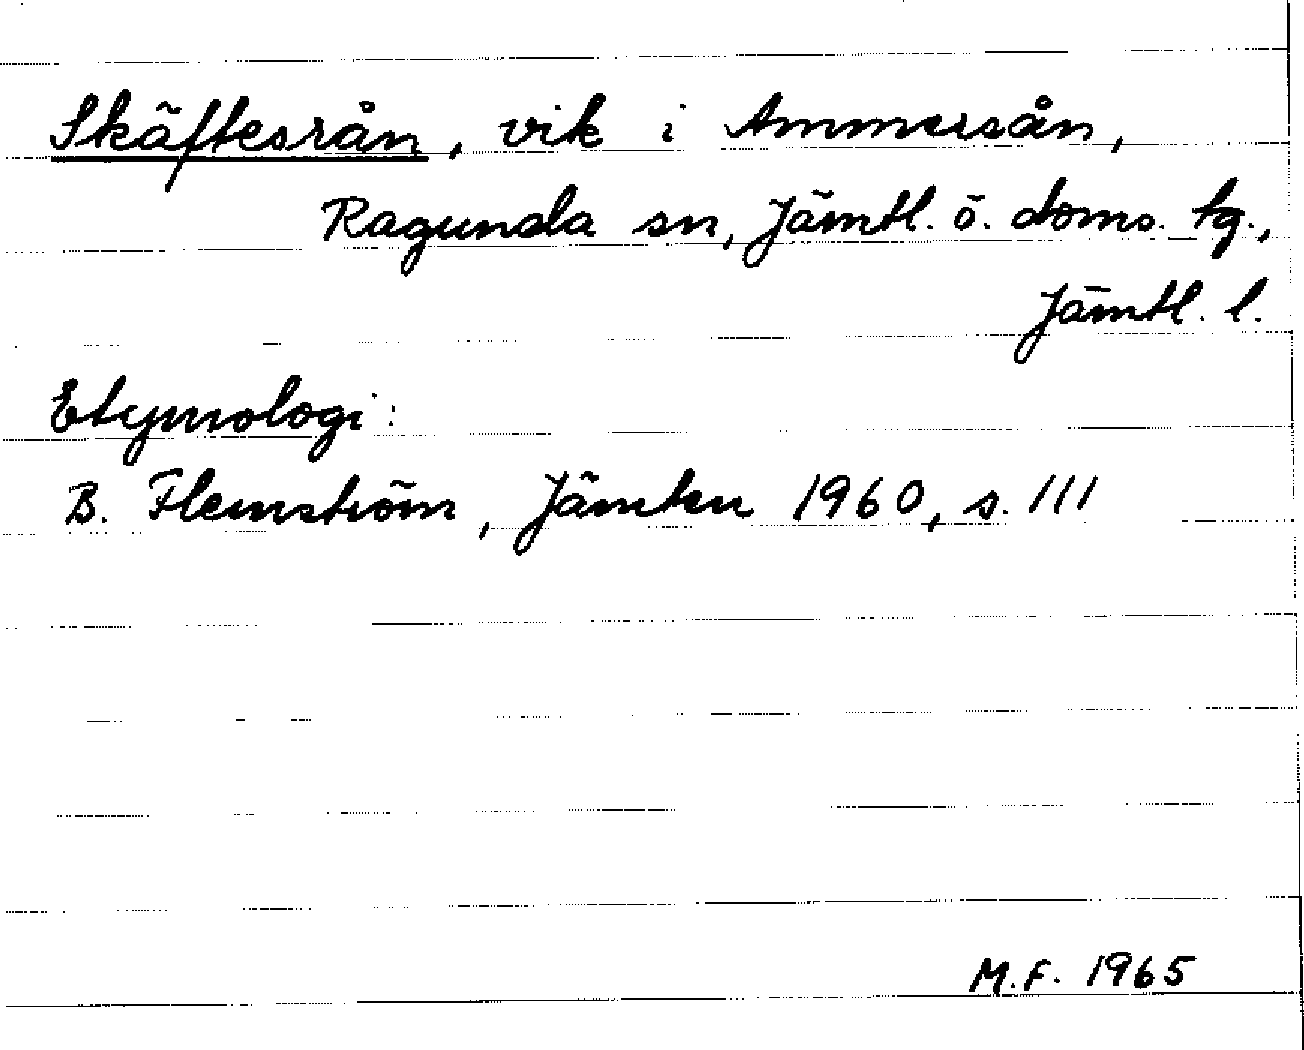 Skäftesrån, vik i Ammersån,
Ragunda sn, Jämtl. ö. doms. tg.,
Jämtl. l.
Etymologi:
B. Flemström, Jämten 1960, s. 111
M.F. 1965